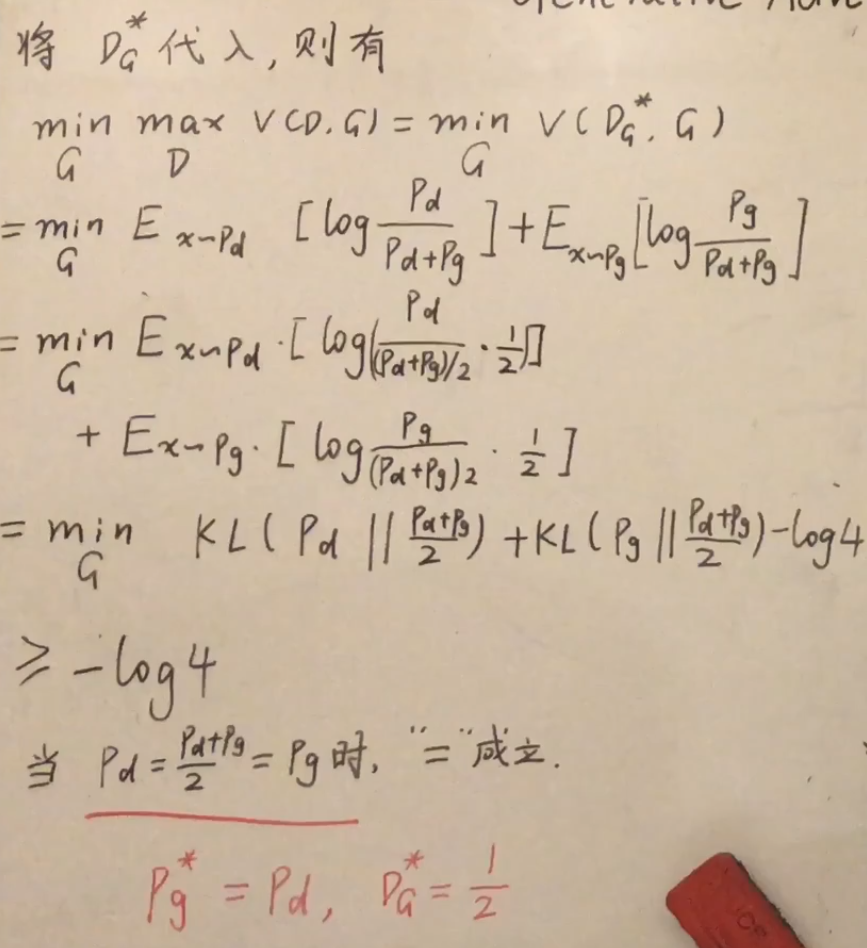 Generative
将 D_G^* 代入, 则有
min_G max_D V(D, G) = min_G V(D_G^*, G)
= min_G E_{x~Pd} [log Pd/(Pd+Pg)] + E_{x~Pg} [log Pg/(Pd+Pg)]
= min_G E_{x~Pd} · [log(Pd/((Pd+Pg)/2) · 1/2)]
+ E_{x~Pg} · [log Pg/((Pd+Pg)2) · 1/2]
= min_G KL(Pd || (Pd+Pg)/2) + KL(Pg || (Pd+Pg)/2) - log4
≥ -log4
当 Pd = (Pd+Pg)/2 = Pg 时, "=" 成立.
Pg^* = Pd, D_G^* = 1/2